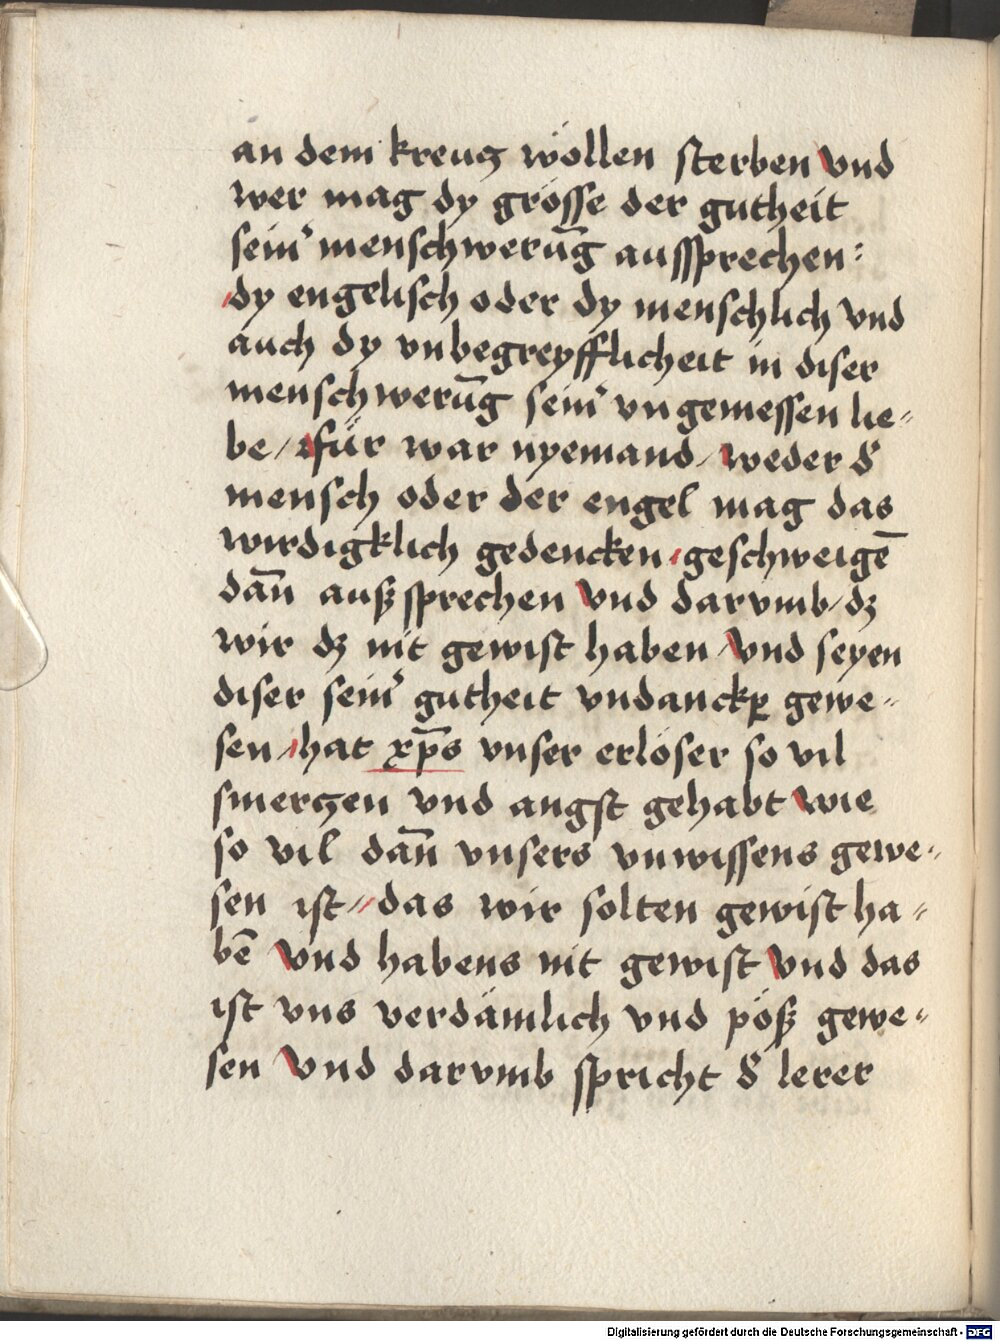 an dem kreucz wöllen sterben Vnd
wer mag dy grösse der gutheit
sein᾽ menschwerūg aussprechen:
dy engelisch oder dy menschlich vnd
auch dy vnbegreyfflicheit in diser
menschwerūg sein᾽ vngemessen lie⸗
be / für war nyemand / weder d᾽
mensch oder der engel mag das
wirdigklich gedencken / geschweigē
dañ außsprechen Vnd darvmb / dz
wir dz nit gewist haben / Vnd seyen
diser sein᾽ gutheit vndanckꝑ gewe⸗
sen / hat xp̄s vnser erlöser so vil
smerczen vnd angst gehabt Wie
so vil dañ vnsers vnwissens gewe⸗
sen ist // das wir solten gewist ha⸗
bē Vnd habens nit gewist Vnd das
ist vns verdämlich vnd pöß gewe⸗
sen Vnd darvmb spricht d᾽ lerer
Digitalisierung gefördert durch die Deutsche Forschungsgemeinschaft - DFG